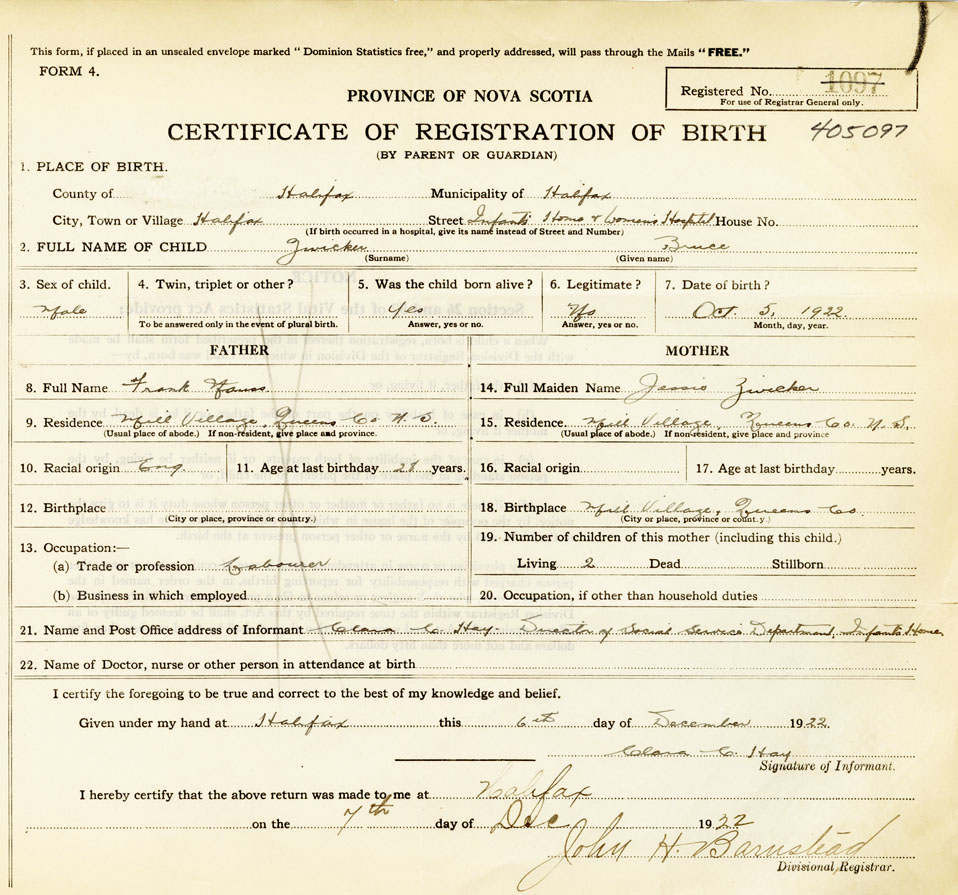 This form, if placed in an unsealed envelope marked "Dominion Statistics free," and properly addressed, will pass through the Mails "FREE."
FORM 4.
1097
Registered No.
For use of Registrar General only.
PROVINCE OF NOVA SCOTIA
CERTIFICATE OF REGISTRATION OF BIRTH 405097
(BY PARENT OR GUARDIAN)
1. PLACE OF BIRTH.
County of Halifax Municipality of Halifax
City, Town or Village Halifax Street Infants Home & Womens Hospital House No.
(If birth occurred in a hospital, give its name instead of Street and Number)
2. FULL NAME OF CHILD Zwicker Bruce
(Surname) (Given name)
3. Sex of child. 4. Twin, triplet or other? 5. Was the child born alive? 6. Legitimate? 7. Date of birth?
Male Yes No Oct 5, 1922
To be answered only in the event of plural birth. Answer, yes or no. Answer, yes or no. Month, day, year.
FATHER MOTHER
8. Full Name Frank 14. Full Maiden Name Jessie Zwicker
9. Residence Mill Village, Queens Co N.S. 15. Residence. Mill Village, Queens Co. N.S.
(Usual place of abode.) If non-resident, give place and province. (Usual place of abode.) If non-resident, give place and province
10. Racial origin Eng. 11. Age at last birthday 28 years. 16. Racial origin 17. Age at last birthday years.
12. Birthplace 18. Birthplace Mill Village, Queens Co.
(City or place, province or country.) (City or place, province or county.)
13. Occupation:— 19. Number of children of this mother (including this child.)
(a) Trade or profession Labourer Living 2 Dead Stillborn
(b) Business in which employed 20. Occupation, if other than household duties
21. Name and Post Office address of Informant Clara C. Hay. Director of Social Service Department, Infants Home
22. Name of Doctor, nurse or other person in attendance at birth
I certify the foregoing to be true and correct to the best of my knowledge and belief.
Given under my hand at Halifax this 6th day of December 1922
Clara C. Hay
Signature of Informant.
I hereby certify that the above return was made to me at Halifax
on the 7th day of Dec 1922
John H Barnstead
Divisional Registrar.